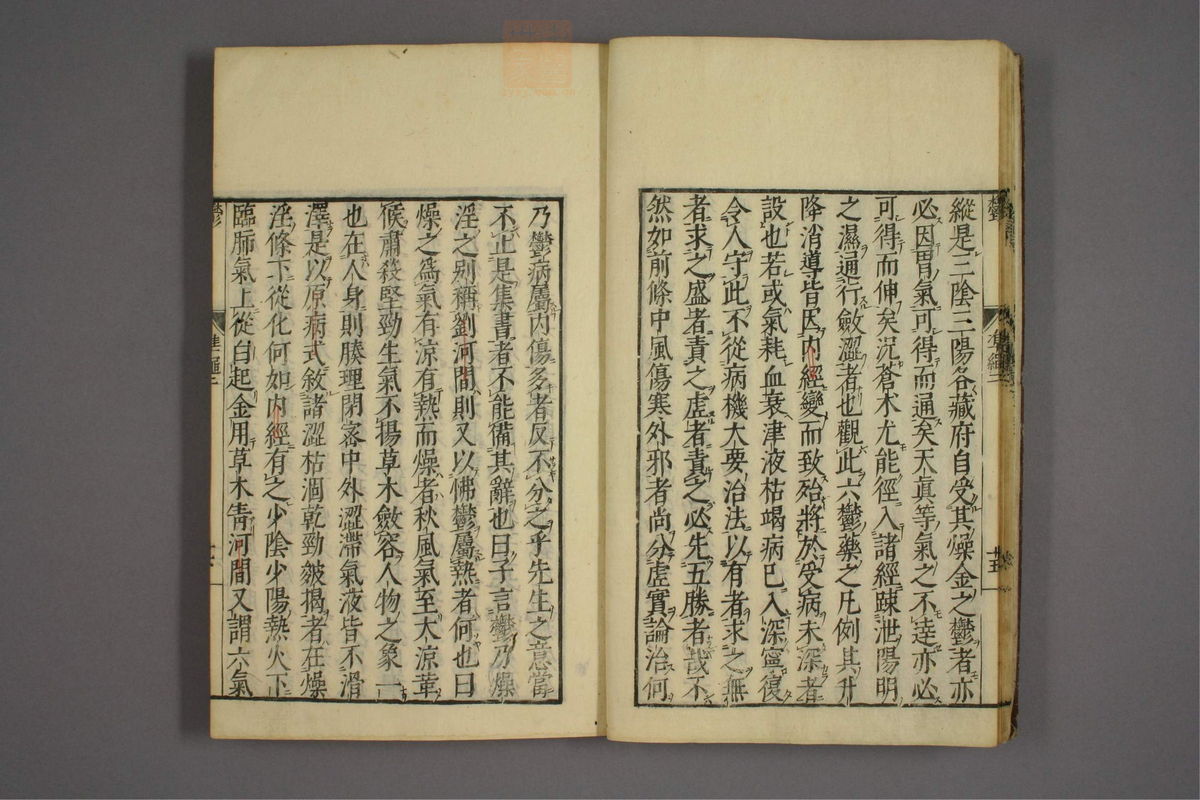 縱是三陰三陽各藏府自受其燥金之鬱者亦
必因胃氣可得而通矣天眞等氣之不達亦必
可得而伸矣況蒼朮尤能徑入諸經踈泄陽明
之濕通行斂澀者也觀此六鬱藥之凡例其升
降消導皆因內經變而致殆將於受病未深者
設也若或氣耗血衰津液枯竭病已入深寧復
令人守此不從病機大要治法以有者求之無
者求之盛者責之虛者責之必先五勝者哉不
然如前條中風傷寒外邪者尚分虛實論治何
乃鬱病屬內傷多者反不分之乎先生之意當
不止是集書者不能備其辭也曰子言鬱乃燥
淫之別稱劉河間則又以怫鬱屬熱者何也曰
燥之爲氣有涼有熱而燥者秋風氣至大涼革
候肅殺堅勁生氣不揚草木斂容人物之象一
也在人身則腠理閉密中外澀滯氣液皆不滑
澤是以原病式敘諸澀枯涸乾勁皴揭者在燥
淫條下從化何如內經有之少陰少陽熱火下
臨肺氣上從白起金用草木眚河間又謂六氣